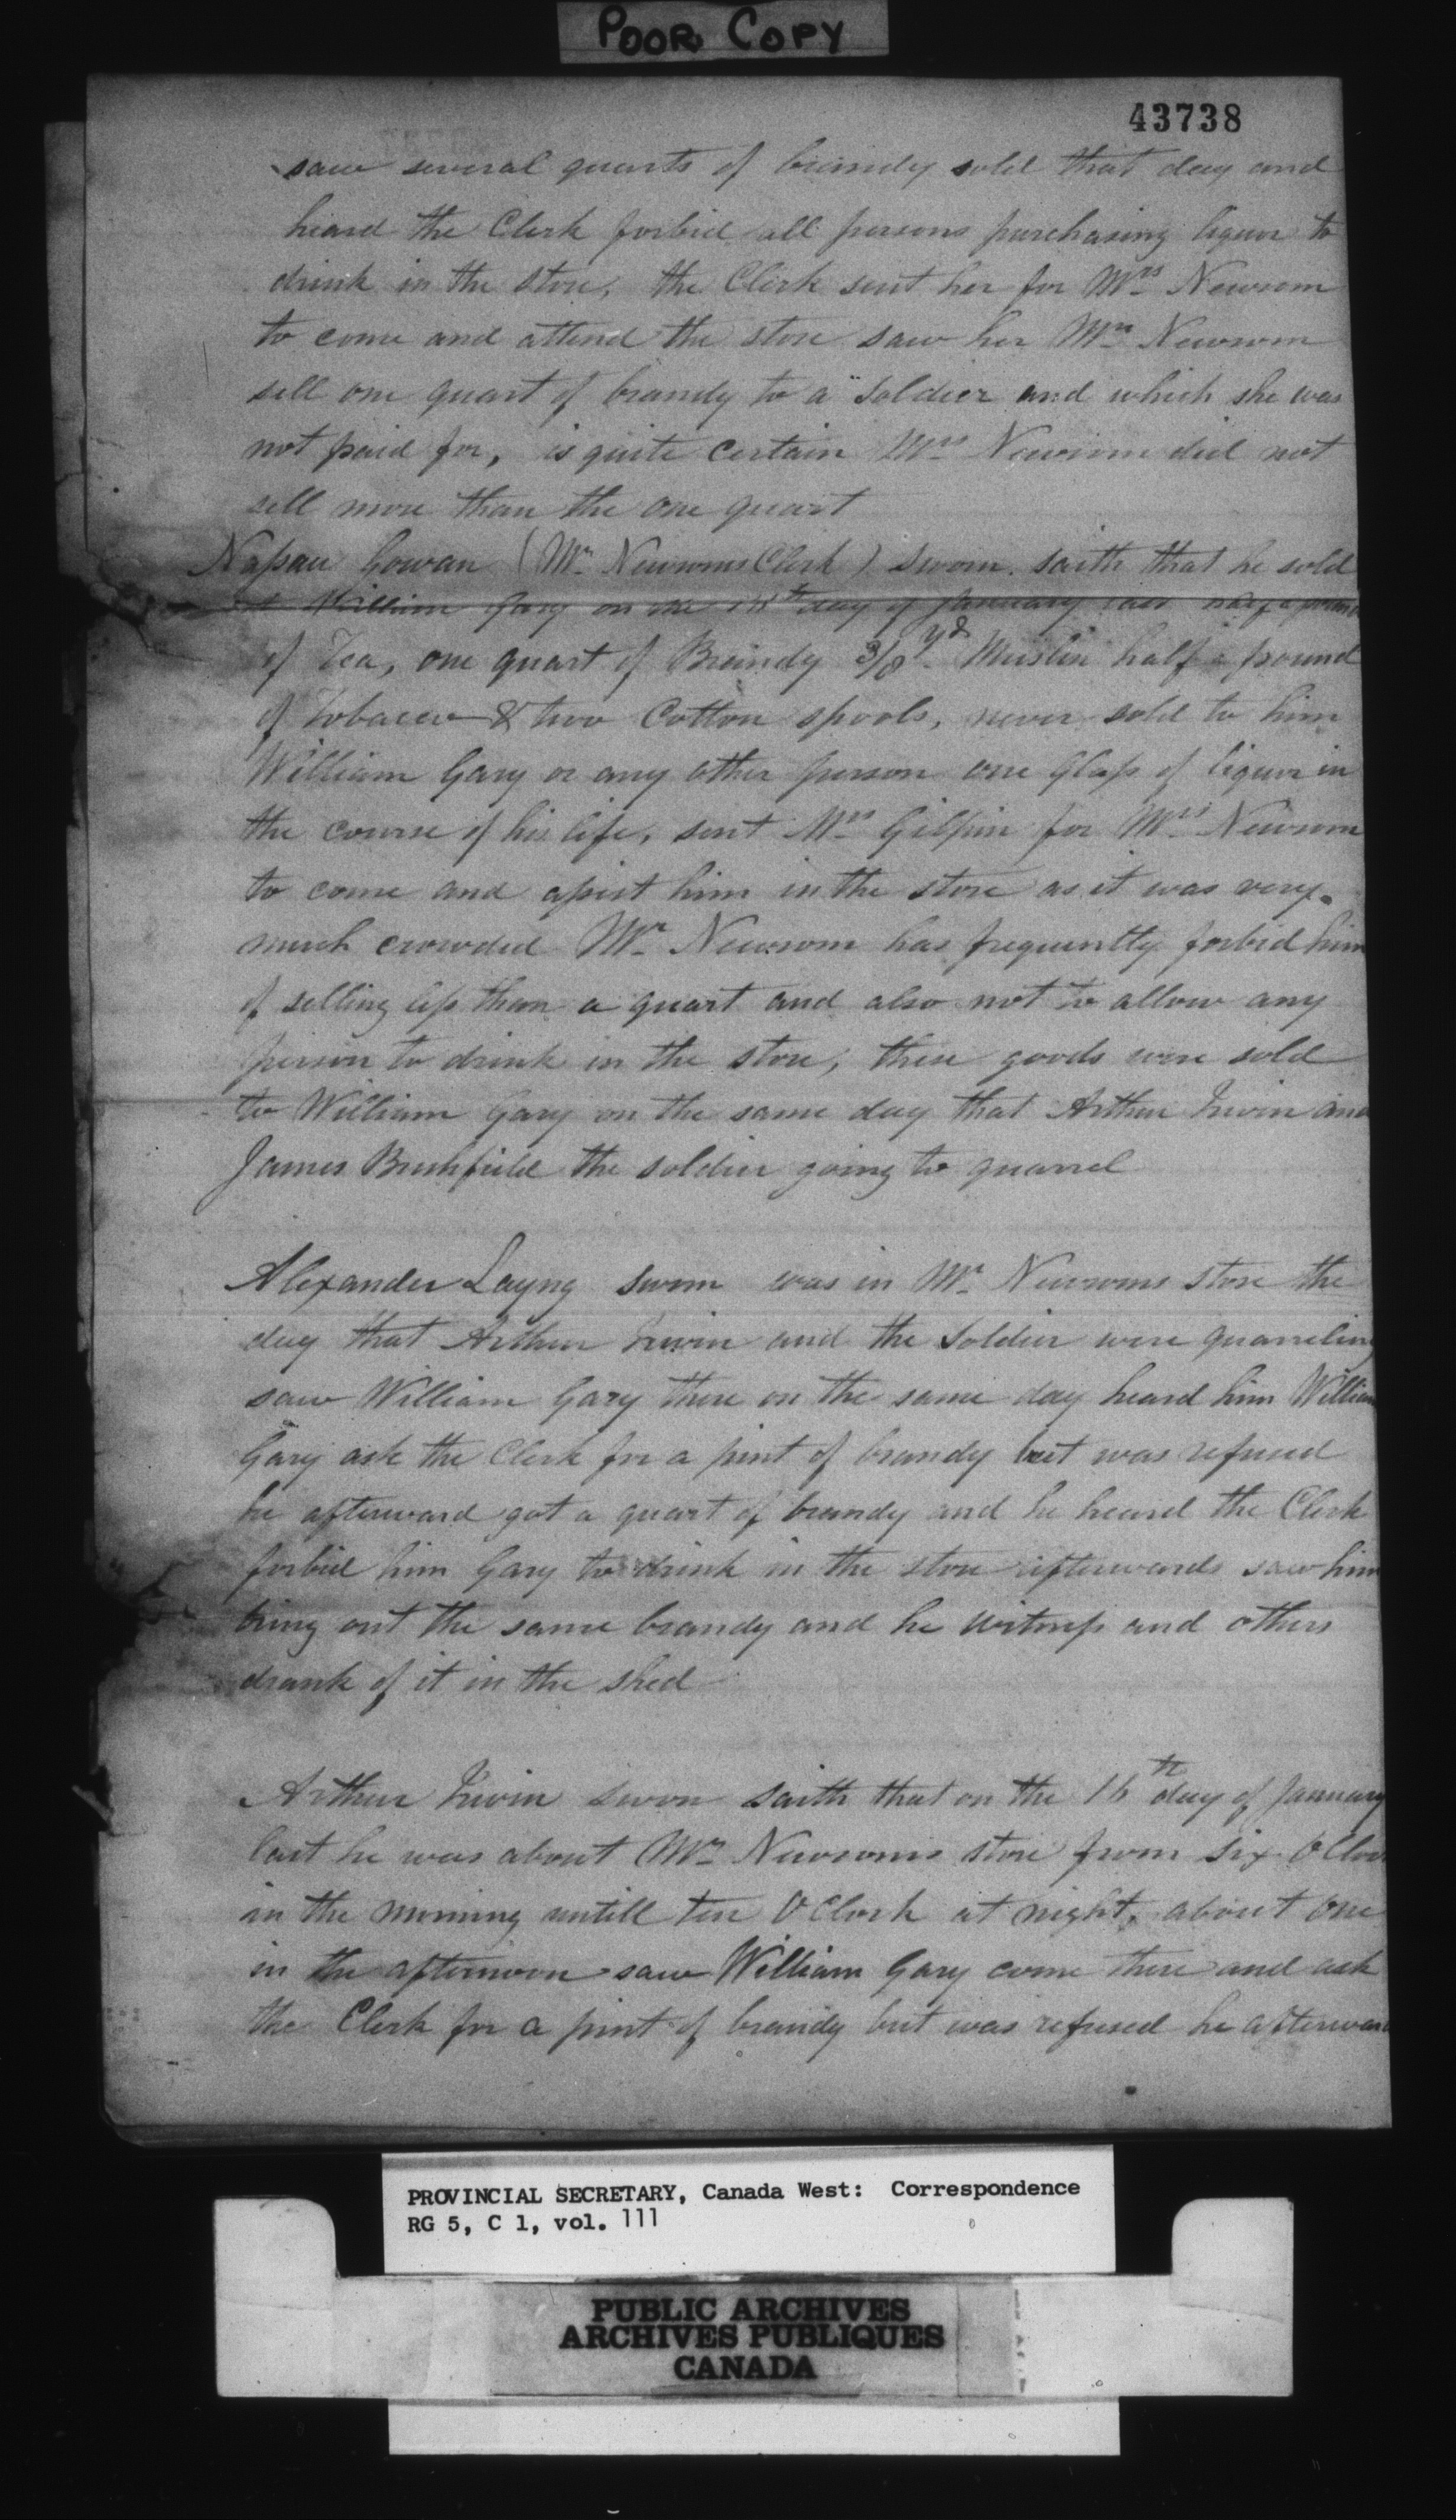 POOR COPY
43738
saw several quarts of brandy sold that day and
heard the Clerk forbid all persons purchasing liquor to
drink in the store, the Clerk sent her for Mrs Newsom
to come and attend the store saw her Mrs Newsom
sell one quart of brandy to a Soldier and which she was
not paid for, is quite certain Mrs Newsom did not
sell more than the one quart
Nassau Gowan (Mr Newsoms Clerk) sworn saith that he sold
William Gary on the day of January half a pound
of Tea, one quart of Brandy 3/8 yds Muslin half a pound
of tobacco & two Cotton spools, never sold to him
William Gary or any other person one Glass of liquor in
the course of his life, sent Mrs Gilpin for Mrs Newsom
to come and assist him in the store as it was very
much crowded Mr Newsom has frequently forbid him
of selling less than a quart and also not to allow any
person to drink in the store, these goods were sold
to William Gary on the same day that Arthur Irwin and
James Bushfield the soldier going to quarrel
Alexander Layng sworn was in Mr Newsoms store the
day that Arthur Irwin and the Soldier were quarreling
saw William Gary there on the same day heard him William
Gary ask the Clerk for a pint of brandy but was refused
he afterward got a quart of brandy and he heard the Clerk
forbid him Gary to drink in the store afterwards saw him
bring out the same brandy and he witness and others
drank of it in the shed
Arthur Irwin sworn saith that on the 16th day of January
last he was about Mr Newsoms store from six OCloc
in the morning untill ten OClock at night, about one
in the afternoon saw William Gary come there and ask
the Clerk for a pint of brandy but was refused he afterward
PROVINCIAL SECRETARY, Canada West: Correspondence
RG 5, C 1, vol. 111
PUBLIC ARCHIVES
ARCHIVES PUBLIQUES
CANADA